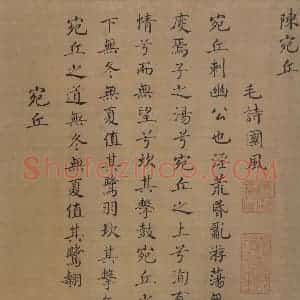 陳宛丘
毛詩國風
宛丘刺幽公也淫荒昬亂游蕩無
度焉子之湯兮宛丘之上兮洵有
情兮而無望兮坎其擊鼓宛丘之
下無冬無夏值其鷺羽坎其擊缶
宛丘之道無冬無夏值其鷺翿
宛丘